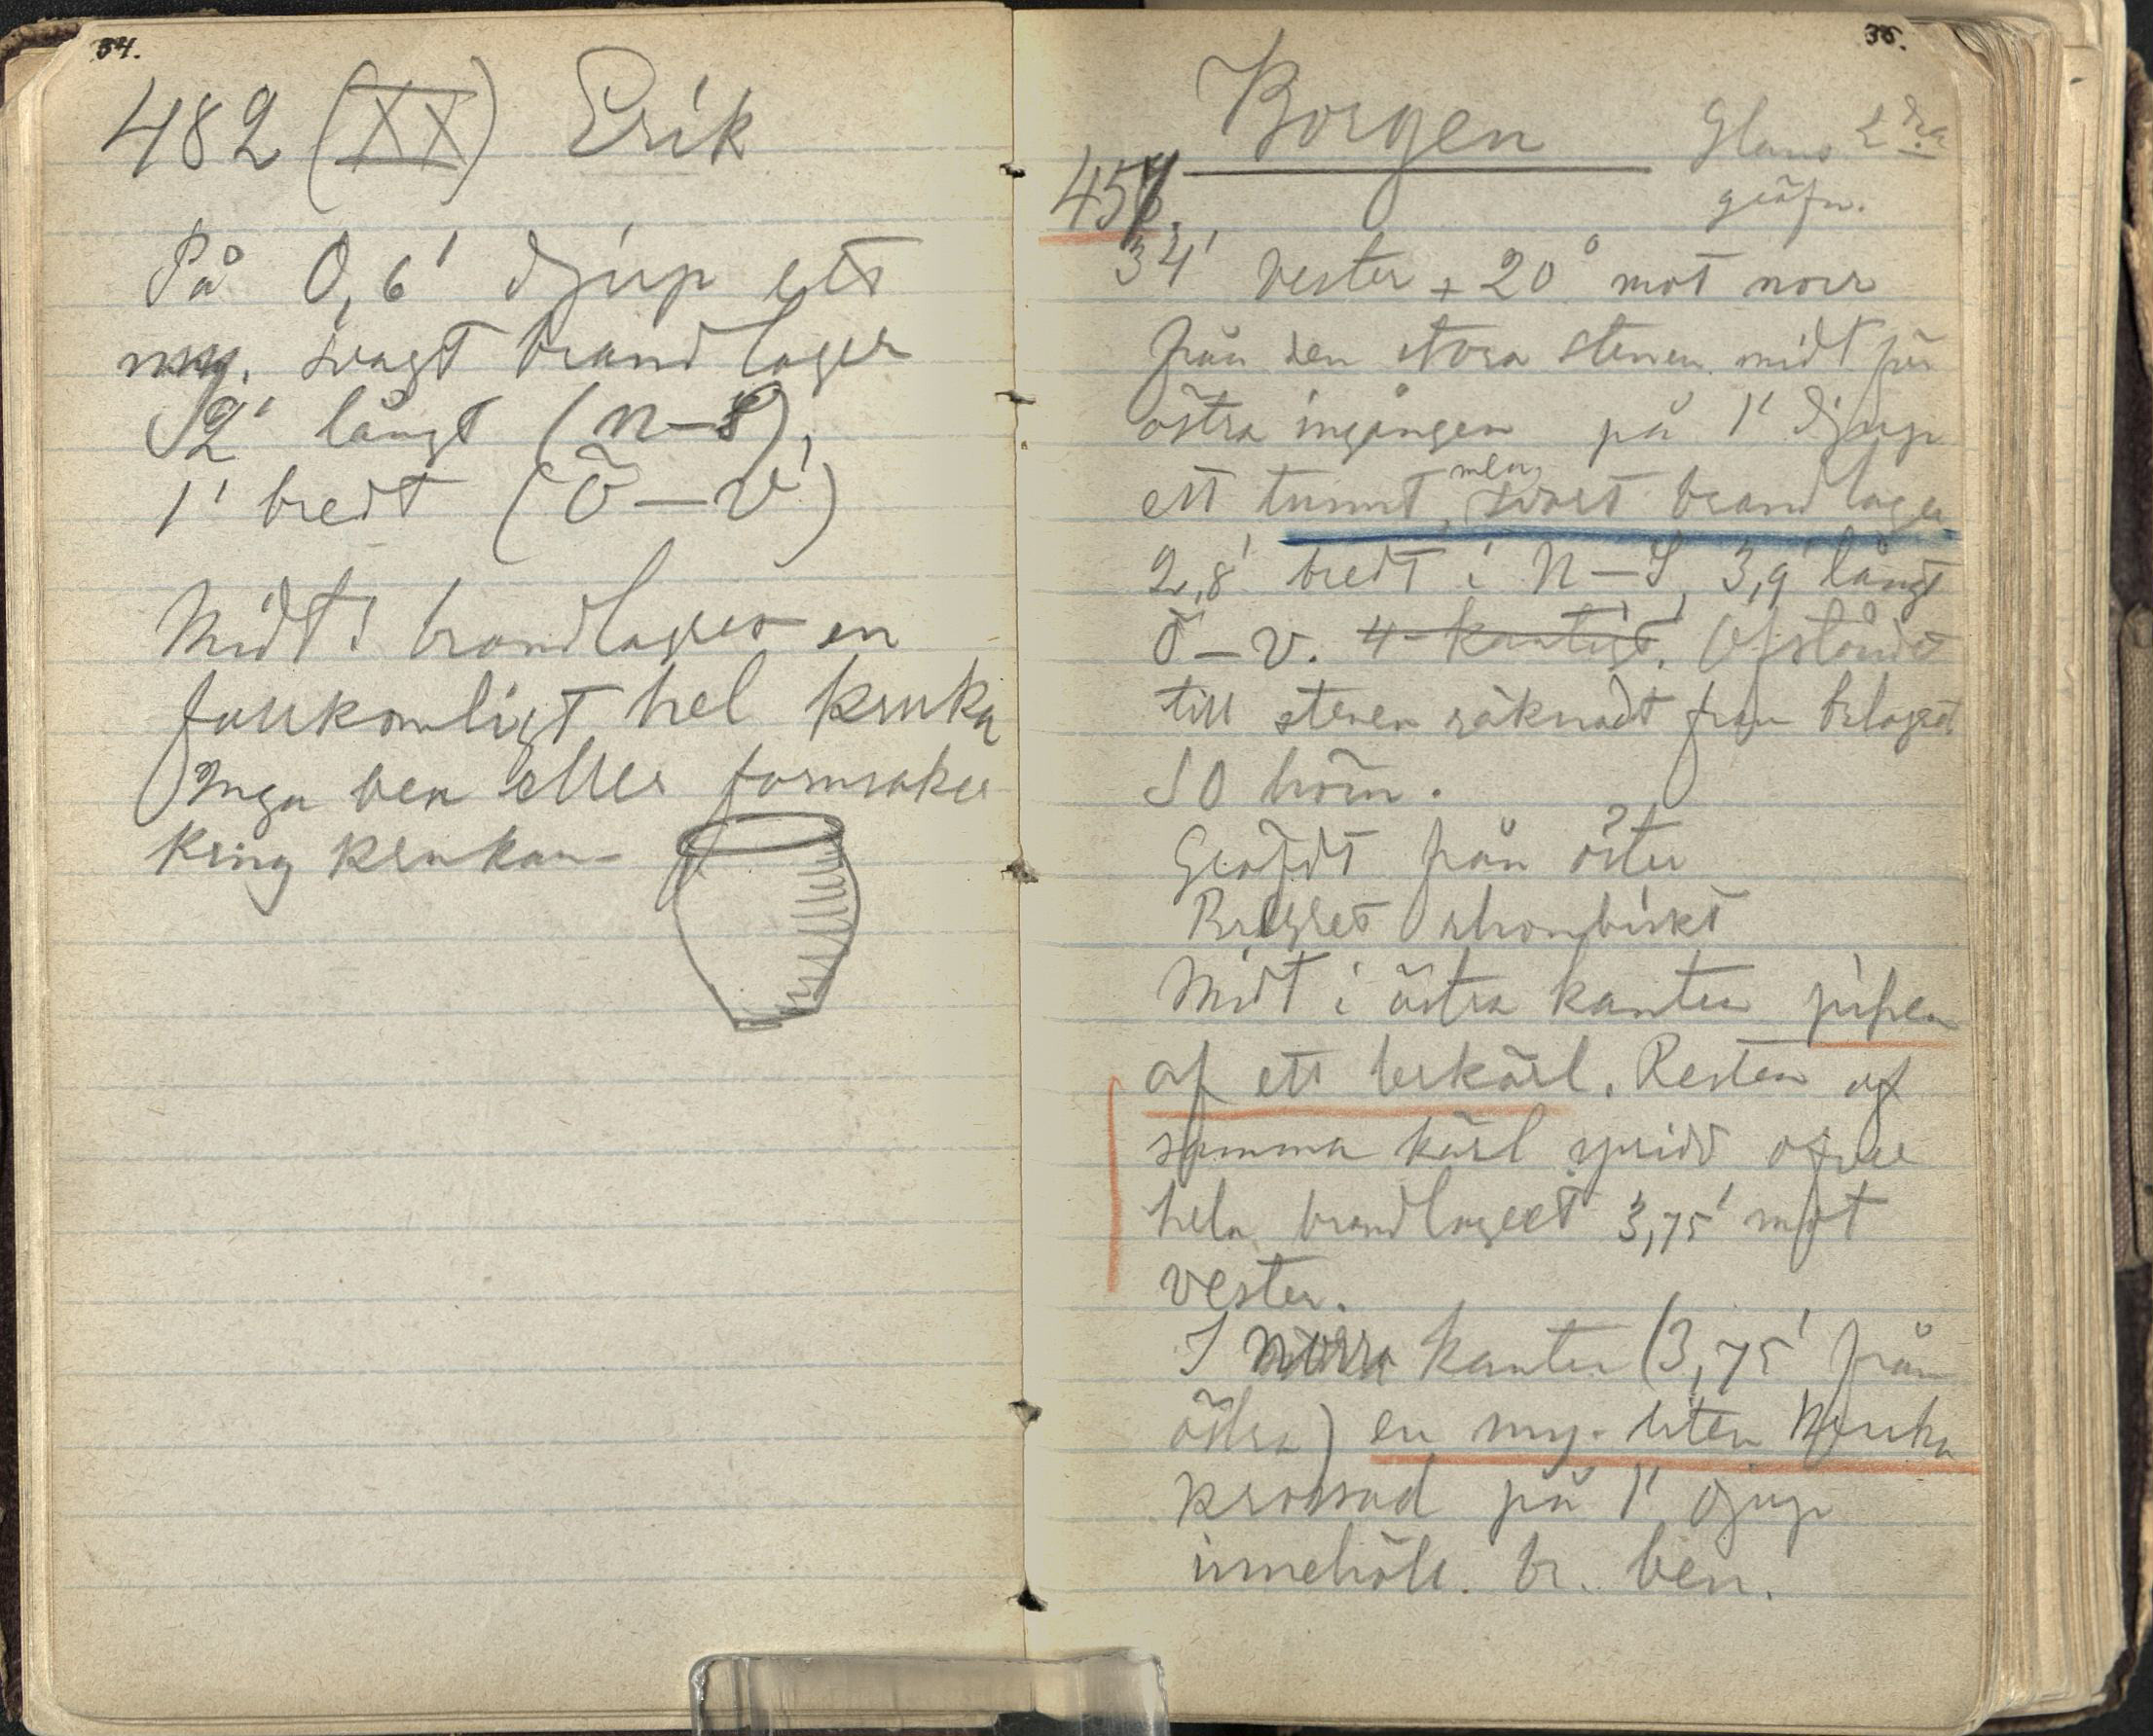 34.
482 (XX) Erik
På 0,6' djup ett
myc. svagt brandlager
2' långt (n–S),
1' bredt (ö–v)
Midt i brandlagret en
fullkomligt hel kruka
Inga ben eller fornsaker
kring krukan
35.
Borgen
2dra
gräfn.
457.
34' vester + 20° mot norr
från den stora stenen midt för
östra ingången på 1' djup
ett tunnt, men svart brandlager
2,8' bredt i N–S, 3,9' långt
Ö–v. 4-kantigt. Afståndet
till stenen räknadt från brlagrets
SO hörn.
Gräfdt från öster
Brlgret rhombiskt
Midt i östra kanten pipen
af ett lerkärl. Resten af
samma kärl spridd öfver
hela brandlagret 3,75' mot
vester.
I norra kanten (3,75' från
östra) en myc. liten kruka
krossad på 1' djup
innehöll. br. ben.